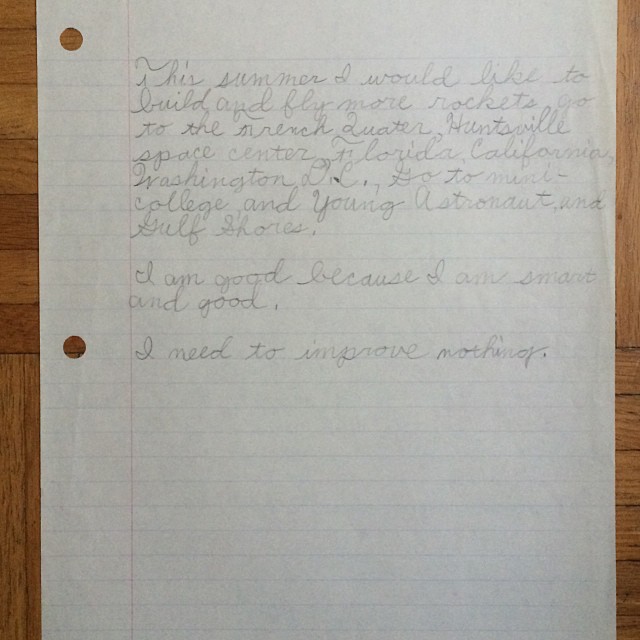 This summer I would like to
build and fly more rockets, go
to the French Quater, Huntsville
space center, Florida, California,
Washington D.C., Go to mini-
college and Young Astronaut, and
Gulf Shores.
I am good because I am smart
and good.
I need to improve nothing.